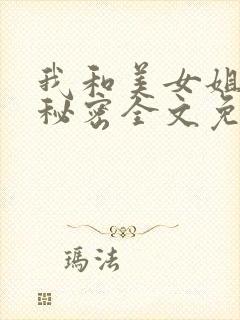 我和美女姐
秘密全文免
玛法